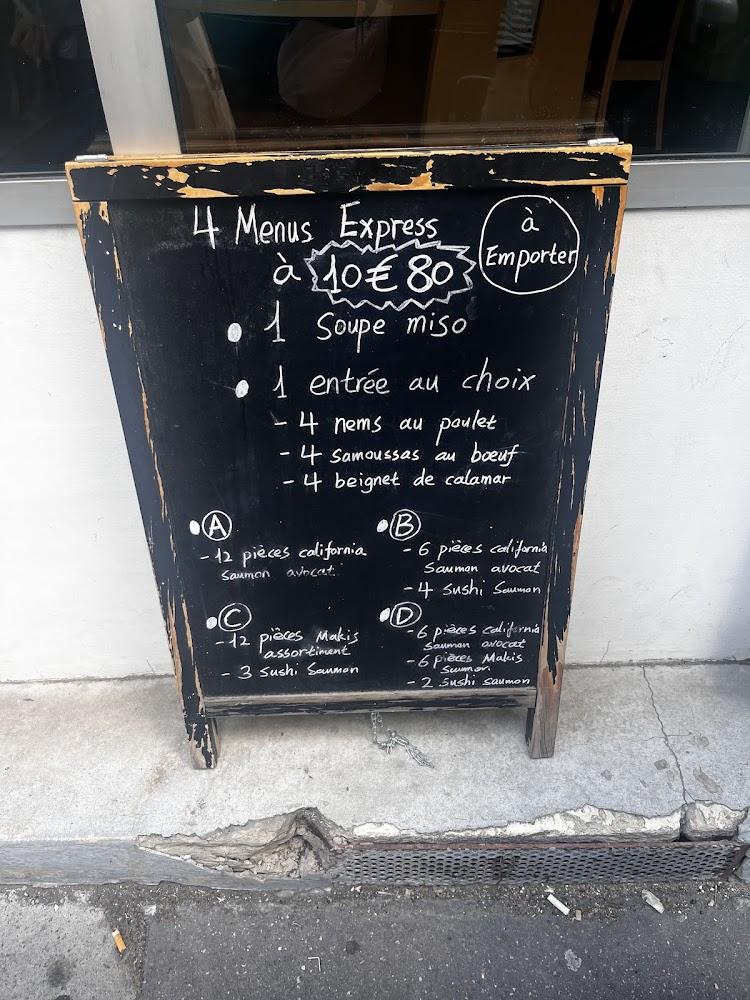 4 Menus Express
à 10€80
à
Emporter
1 soupe miso
1 entrée au choix
- 4 nems au poulet
- 4 samoussas au bœuf
- 4 beignet de calamar
A
- 12 pièces california
saumon avocat
B
- 6 pièces california
saumon avocat
- 4 sushi saumon
C
- 12 pièces Makis
assortiment
- 3 sushi saumon
D
- 6 pièces california
saumon avocat
- 6 pièces Makis
saumon
- 2 sushi saumon